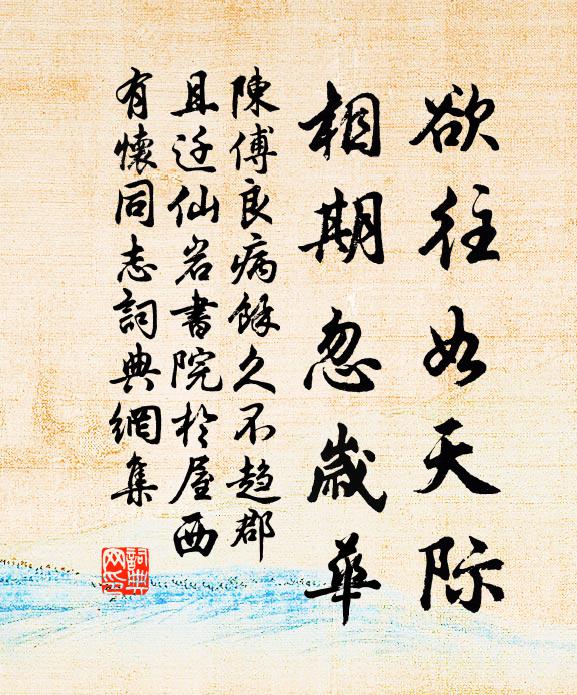 欲往如天际
相期忽歲華
陳傅良病餘久不趋郡
且迁仙岩書院於屋西
有懷同志詞典網集
詞典網印